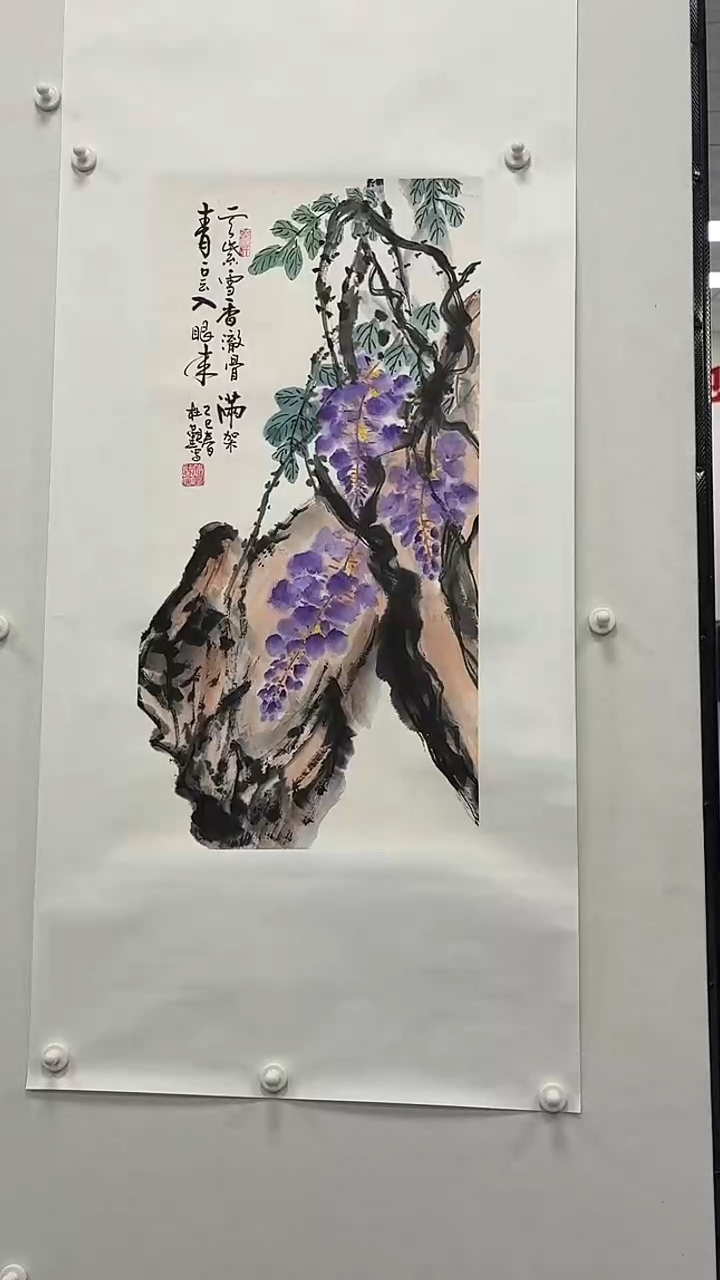 紫雪香澈骨满架
青云入眼来
乙巳春
杜写